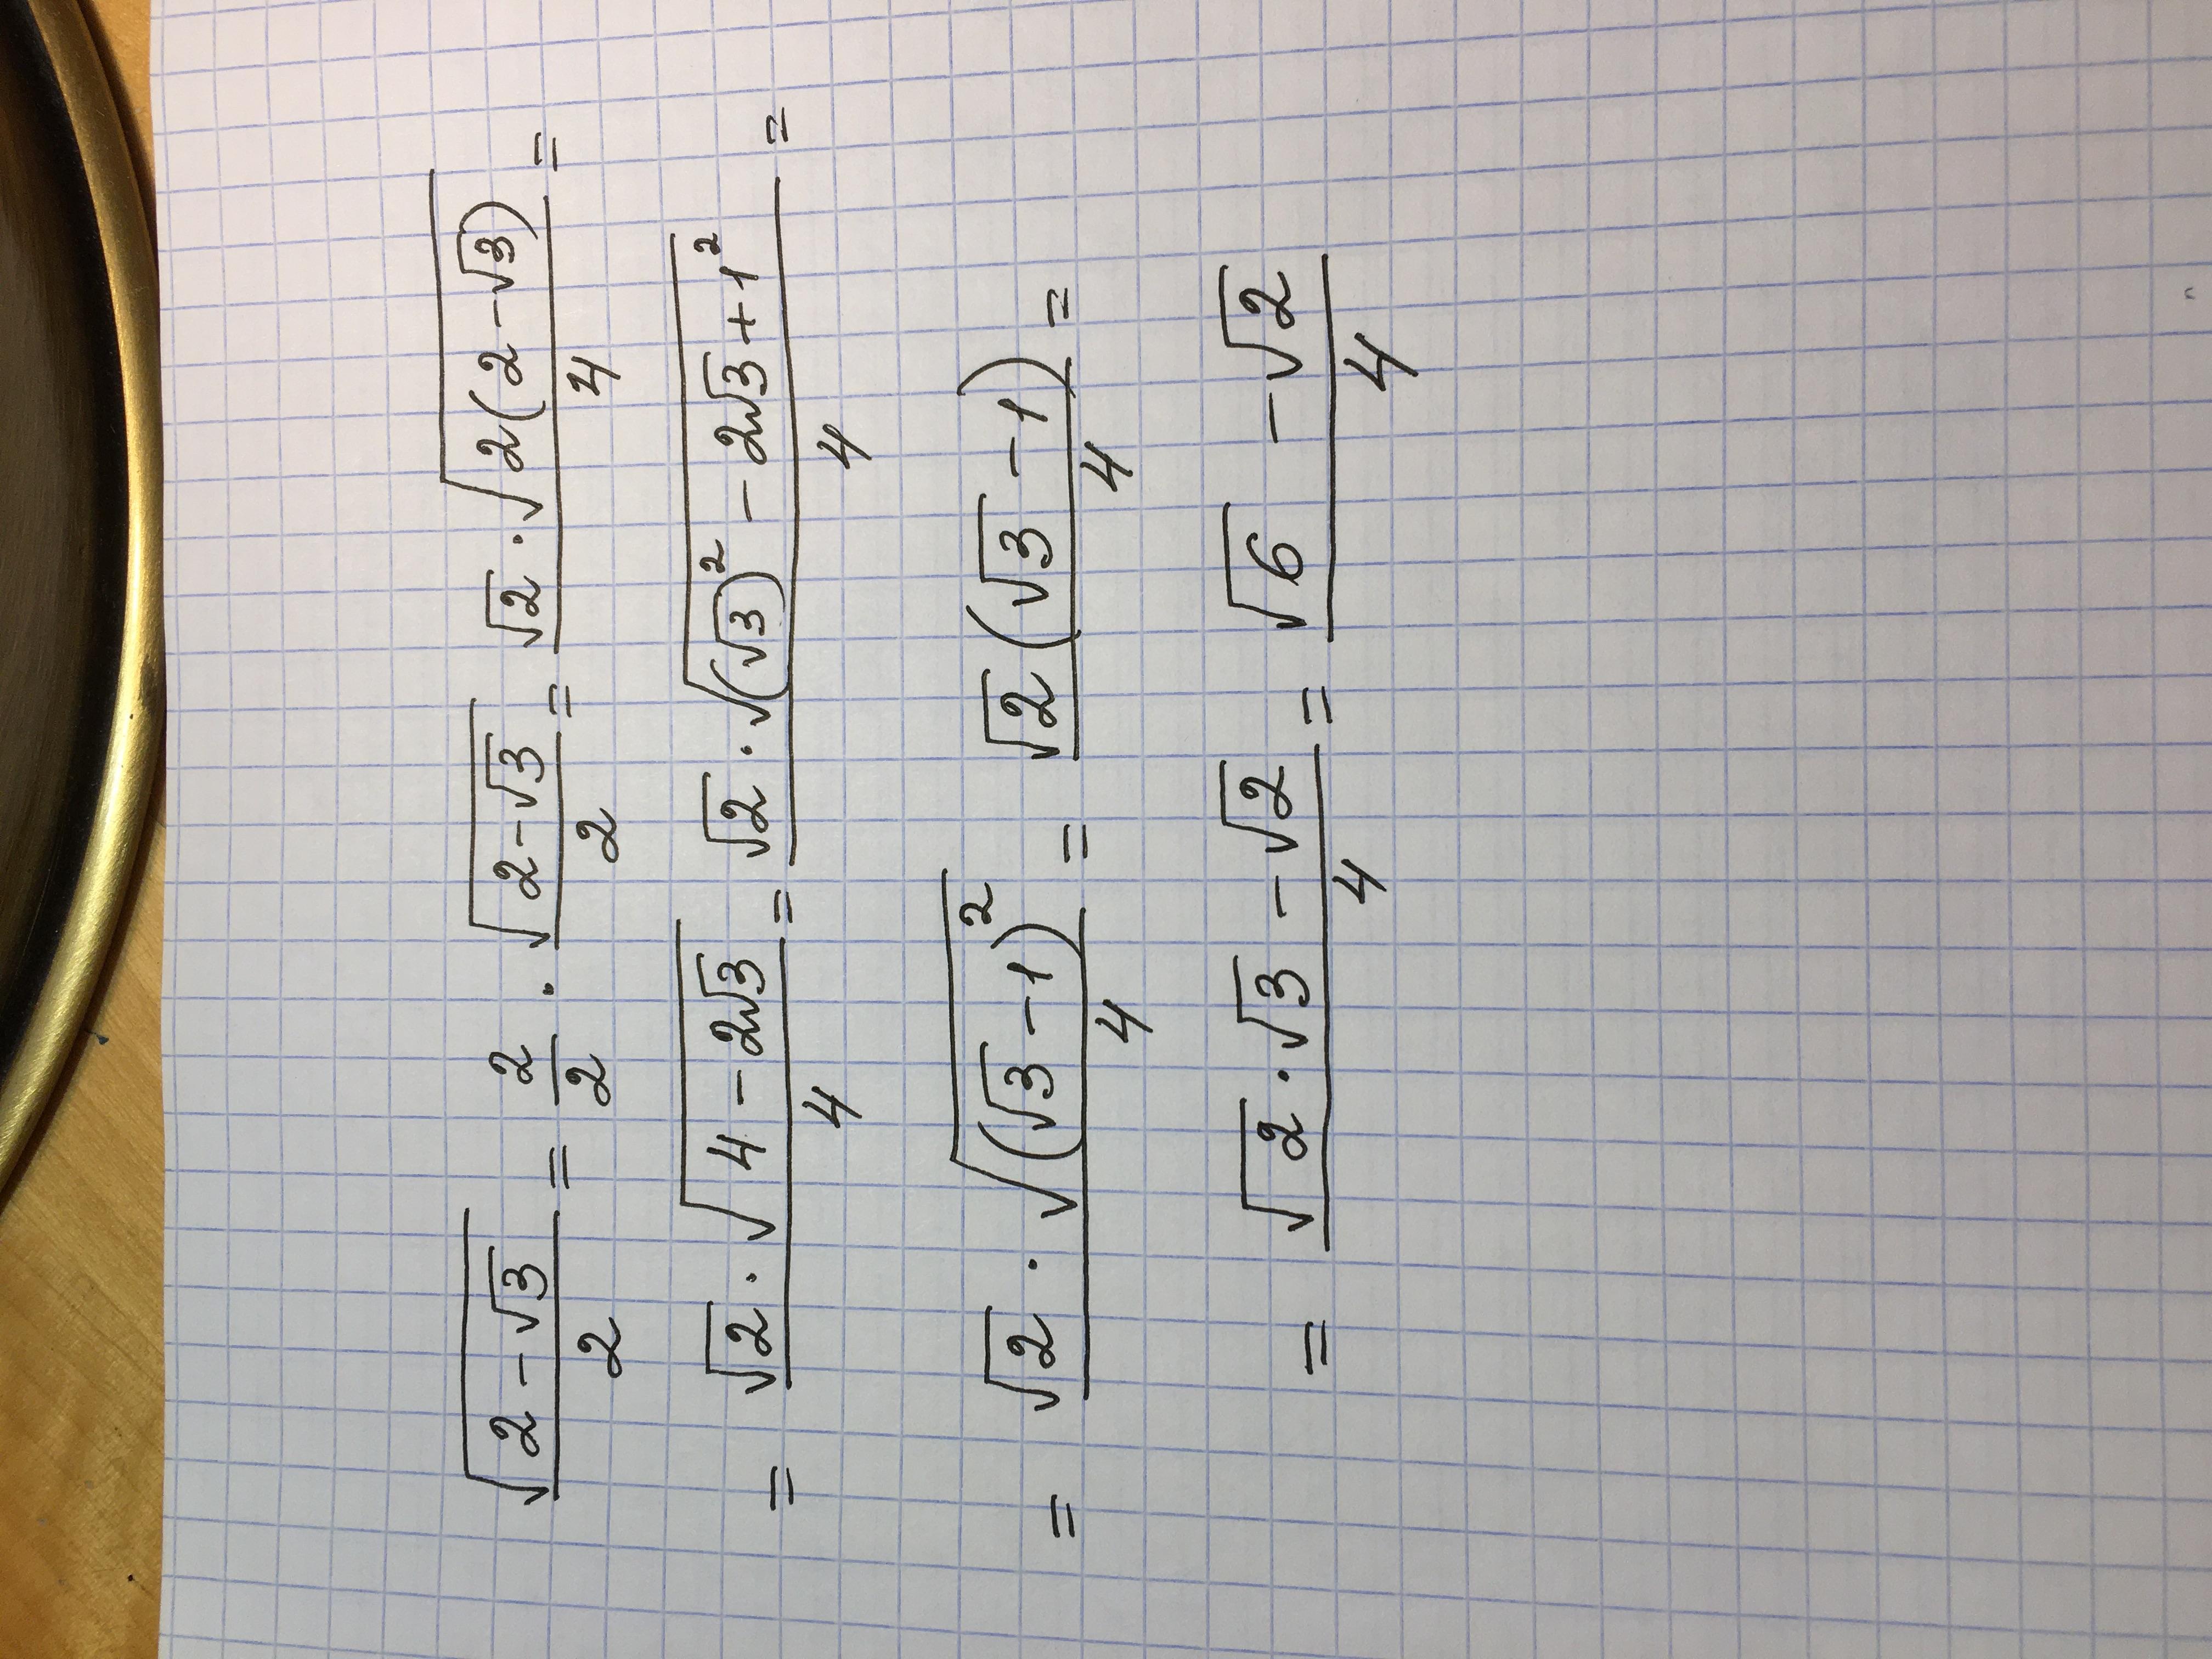 √(2-√3)/2 = 2/2 · √(2-√3)/2 = √2 · √(2(2-√3))/4 =
= √2 · √(4-2√3)/4 = √2 · √((√3)² - 2√3 + 1²)/4 =
= √2 · √((√3-1)²)/4 = √2(√3-1)/4 =
= √2 · √3 - √2/4 = √6 - √2/4